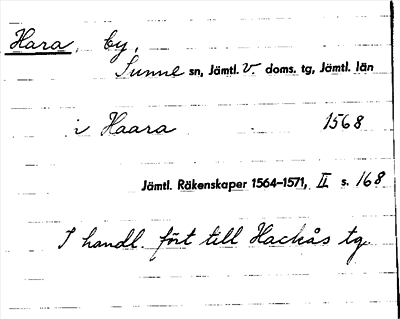 Hara, by,
Sunne sn, Jämtl. v. doms. tg, Jämtl. län
i Haara 1568
Jämtl. Räkenskaper 1564–1571, II s. 168
I handl. fört till Hackås tg.